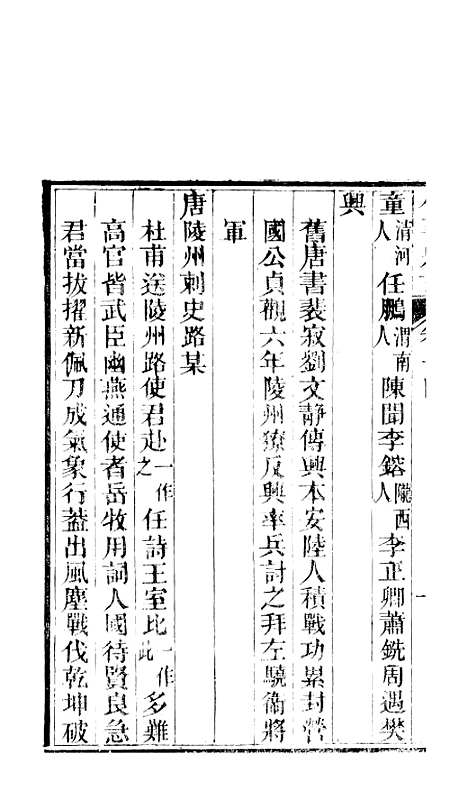 童清河人任鵬渭南人陳聞李鎔隴西人李正卿蕭銑周遇樊
興
舊唐書裴寂劉文靜傳興本安陸人積戰功累封營
國公貞觀六年陵州獠反興率兵討之拜左驍衞將
軍
唐陵州刺史路某
杜甫送陵州路使君赴一作之任詩王室比一作此多難
高官皆武臣幽燕通使者岳牧用詞人國待賢良急
君當拔擢新佩刀成氣象行葢出風塵戰伐乾坤破